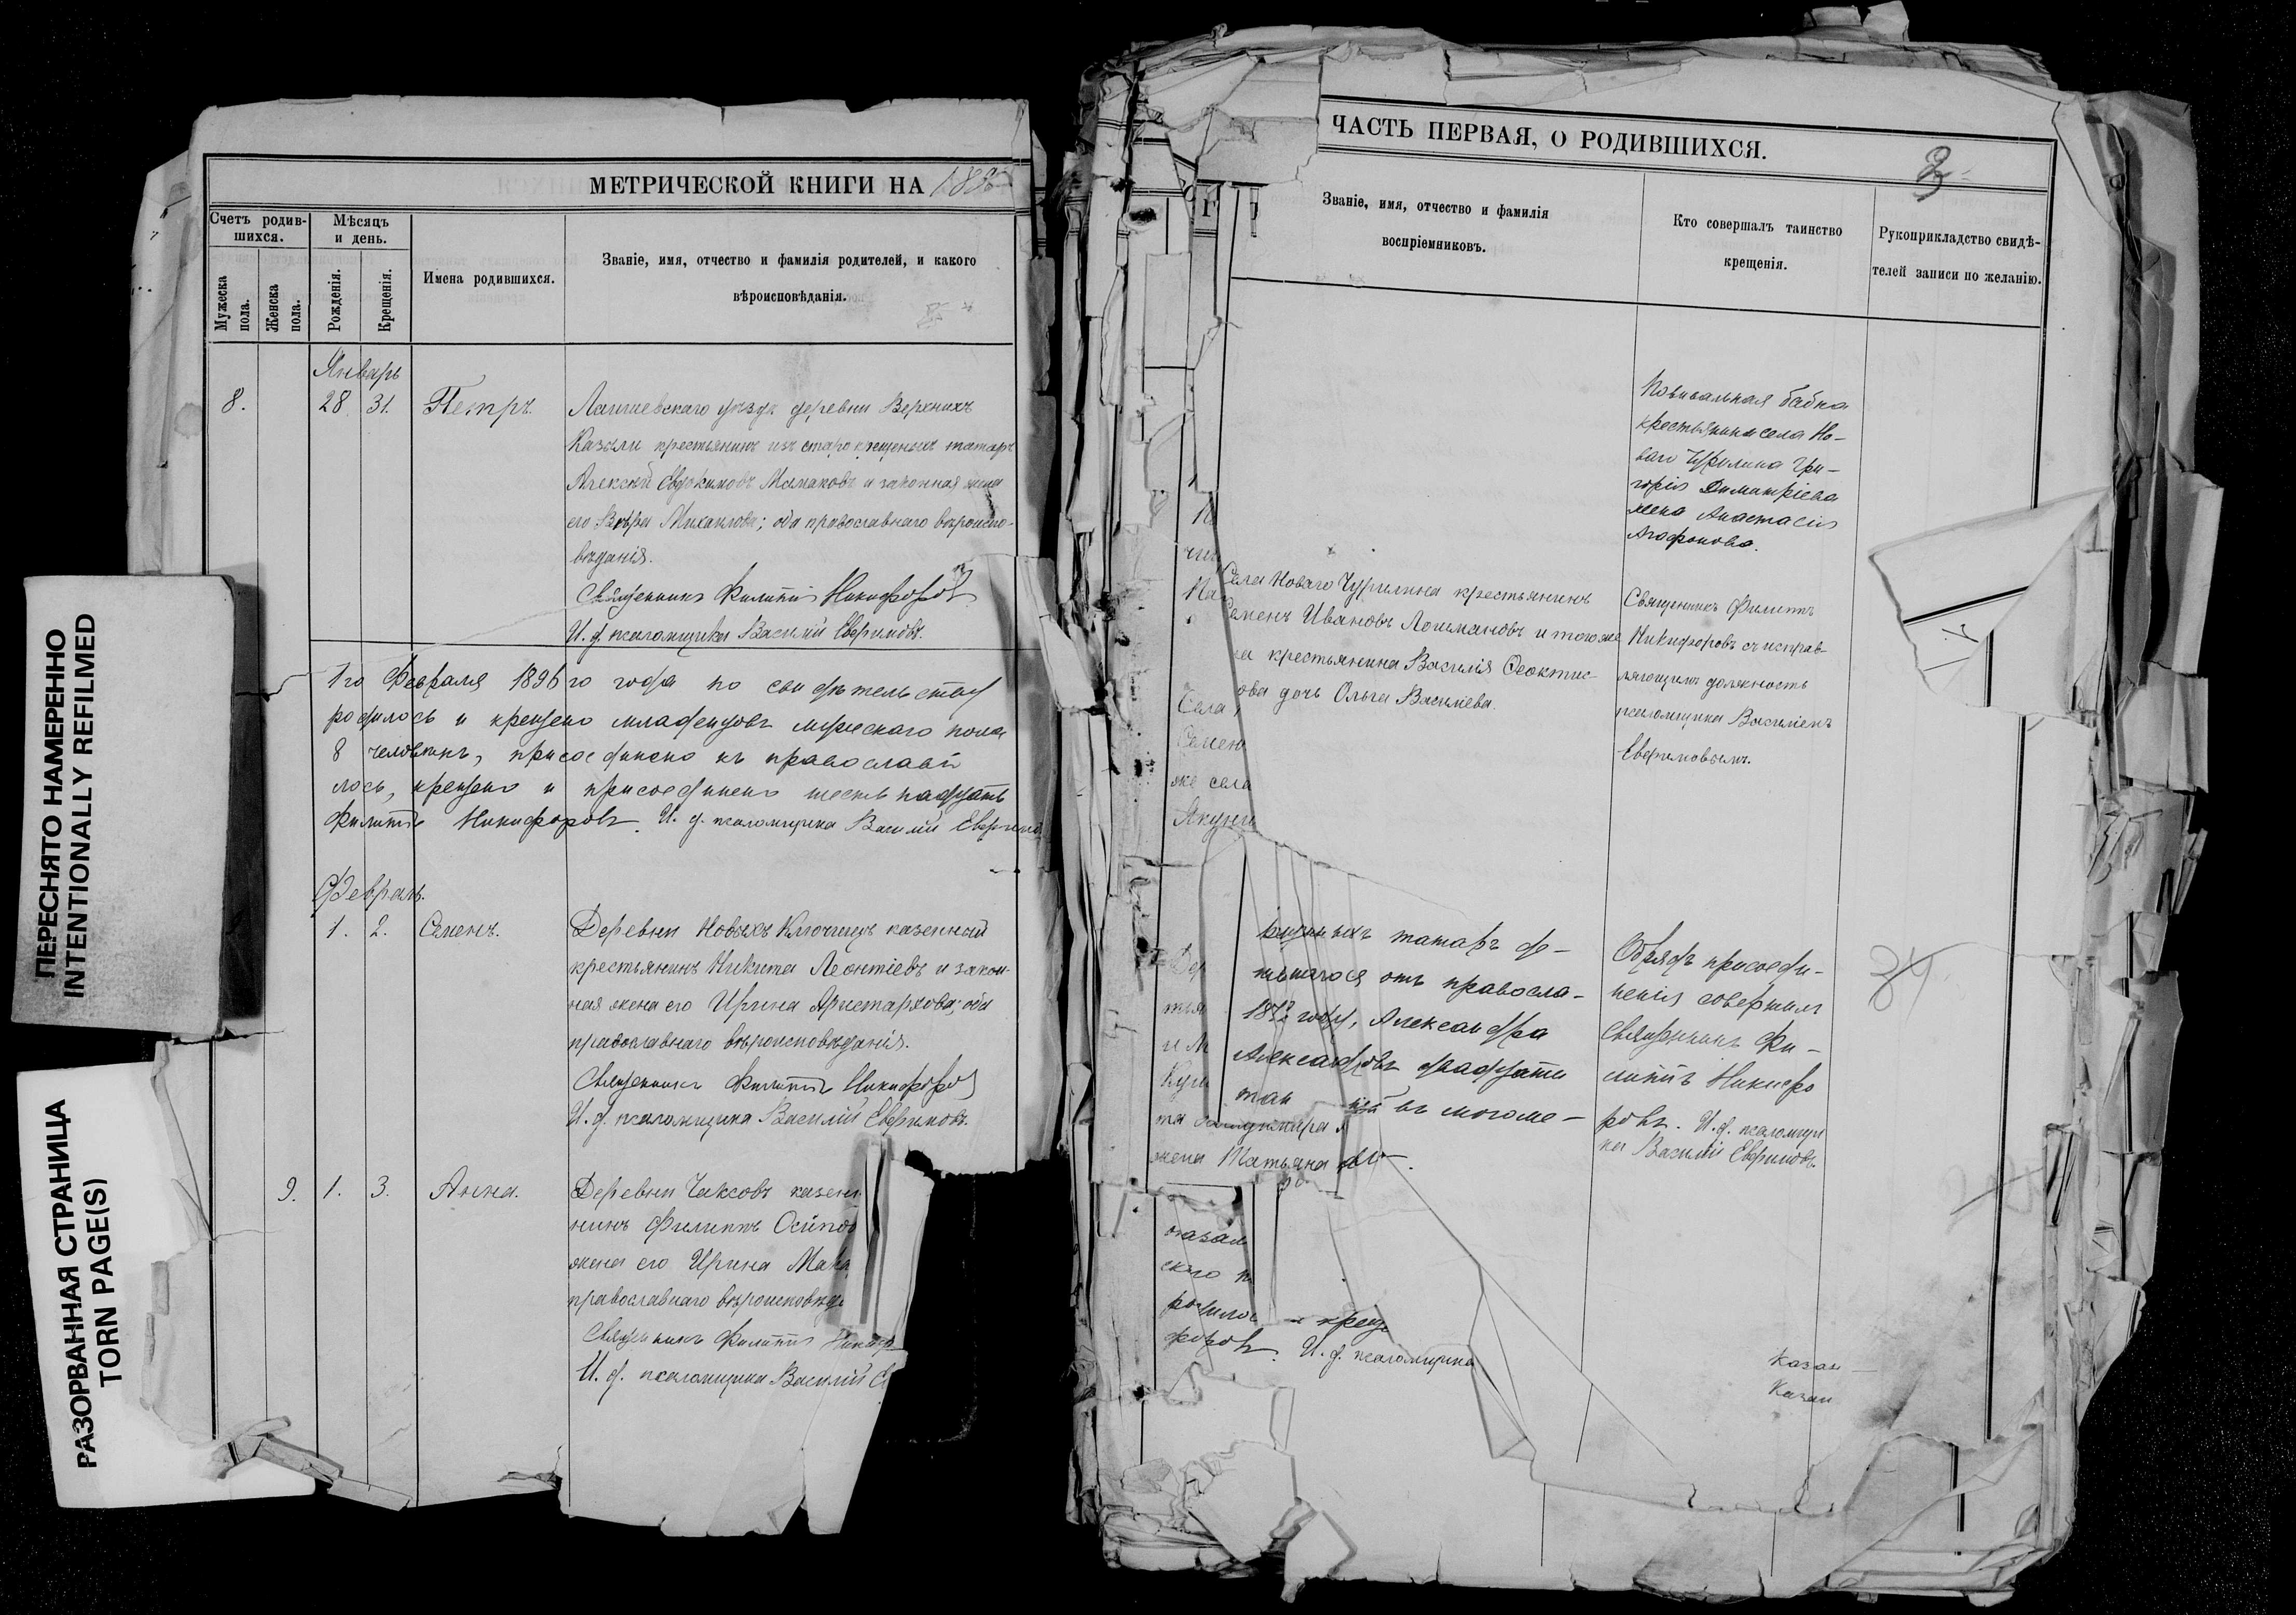 ПЕРЕСНЯТО НАМЕРЕННО
INTENTIONALLY REFILMED
РАЗОРВАННАЯ СТРАНИЦА
TORN PAGE(S)
МЕТРИЧЕСКОЙ КНИГИ НА
Счетъ родив-
шихся.
Мѣсяцъ
и день.
Мужеска
пола.
Женска
пола.
Рожденія.
Крещенія.
Имена родившихся.
Званіе, имя, отчество и фамилія родителей, и какого
вѣроисповѣданія.
Январь
8. 28. 31. Петръ.
Лаишевскаго уѣзда деревни Верхнихъ
Казыли крестьянинъ изъ старокрещеныхъ татаръ
Алексѣй Евдокимовъ Мамаковъ и законная жена
его Вѣра Михаилова; оба православнаго вѣроиспо-
вѣданія.
Священникъ Филиппъ Никифоровъ
И. д. псаломщика Василій Евфимовъ.
1го Февраля 1896го года по свидѣтельству
родилось и крещено младенцовъ мужескаго пола
8 человѣкъ, присоединено къ православі
лось, крещено и присоединено шестьнадцать
Филиппъ Никифоровъ. И. д. псаломщика Василій Евфимо
Февраль.
1. 2. Семенъ.
Деревни Новыхъ Ключищъ казенный
крестьянинъ Никита Леонтіевъ и закон-
ная жена его Ирина Аристархова; оба
православнаго вѣроисповѣданія.
Священникъ Филиппъ Никифоров
И. д. псаломщика Василій Евфимовъ.
9. 1. 3. Анна.
Деревни Чаксовъ казен
нинъ Филиппъ Осипов
жена его Ирина Мака
православнаго вѣроисповѣда
Священникъ Филиппъ Никиф
И. д. псаломщика Василій Е
ЧАСТЬ ПЕРВАЯ, О РОДИВШИХСЯ.
Званіе, имя, отчество и фамилія
воспріемниковъ.
Кто совершалъ таинство
крещенія.
Рукоприкладство свидѣ-
телей записи по желанію.
Повивальная бабка
крестьянина села Но-
ваго Чурилина Гри-
горія Димитріева
жена Анастасія
Агафонова.
Села Новаго Чурилина крестьянинъ
Семенъ Ивановъ Лоимановъ и тогоже
ла крестьянина Василія Ѳеоктис-
ова дочь Ольга Василіева.
Священникъ Филиппъ
Никифоровъ съ исправ-
ляющимъ должность
псаломщика Василіемъ
Евфимовымъ.
Села
Семен
же села
Якуни
татаръ
отъ правосла-
году, Александра
Александровъ двадцати
въ могоме-
жена Татьяна
Обрядъ присоеди-
ненія совершилъ
Священникъ Фи-
липпъ Никифо
ровъ. И. д. псаломщи
ка Василій Евфимовъ.
34
оказал
скаго п
родилос
креще
форовъ. И. д. псаломщика
Казан
Казан